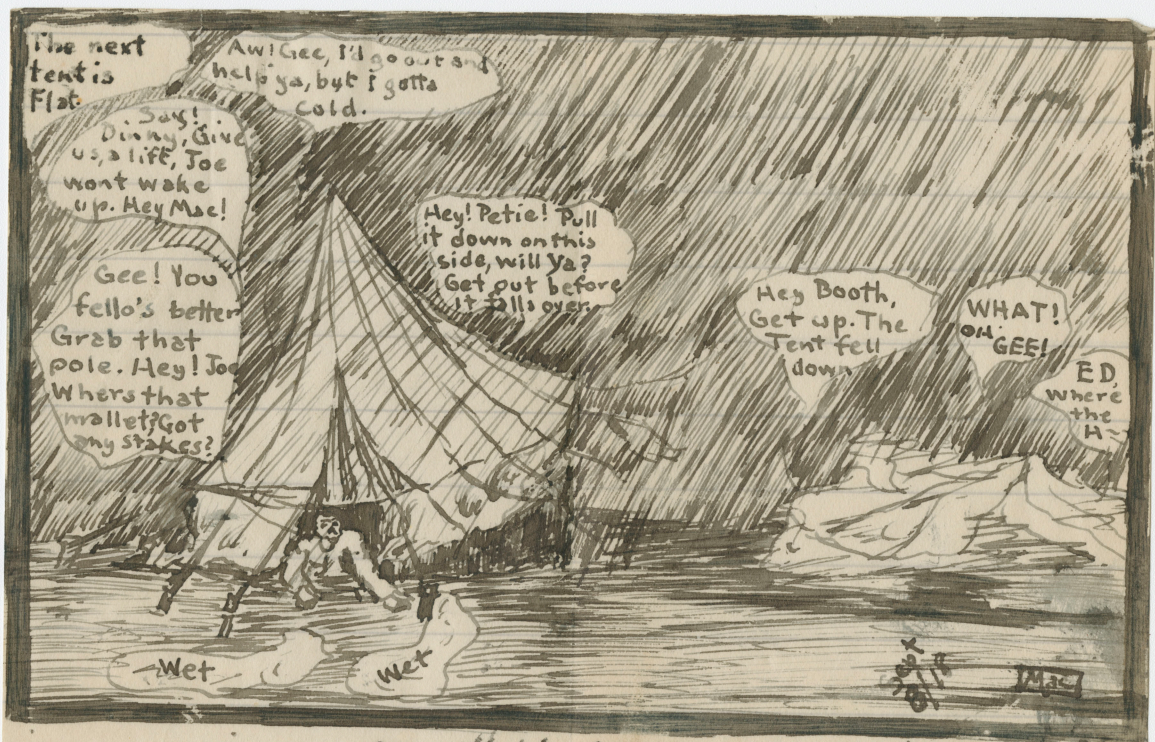 The next
tent is
Flat.
Aw! Gee, I'd go out and
help ya, but I gotta
Cold.
Say!
Dinny, Give
us, a lift, Joe
wont wake
up. Hey Mac!
Gee! You
fello's better
Grab that
pole. Hey! Joe
Whers that
mallet? Got
any stakes?
Hey! Petie! Pull
it down on this
side, will Ya?
Get out before
It falls over.
Hey Booth,
Get up. The
Tent fell
down
WHAT!
OH
GEE!
ED,
where
the
H~
Wet
Wet
8/18
Mac